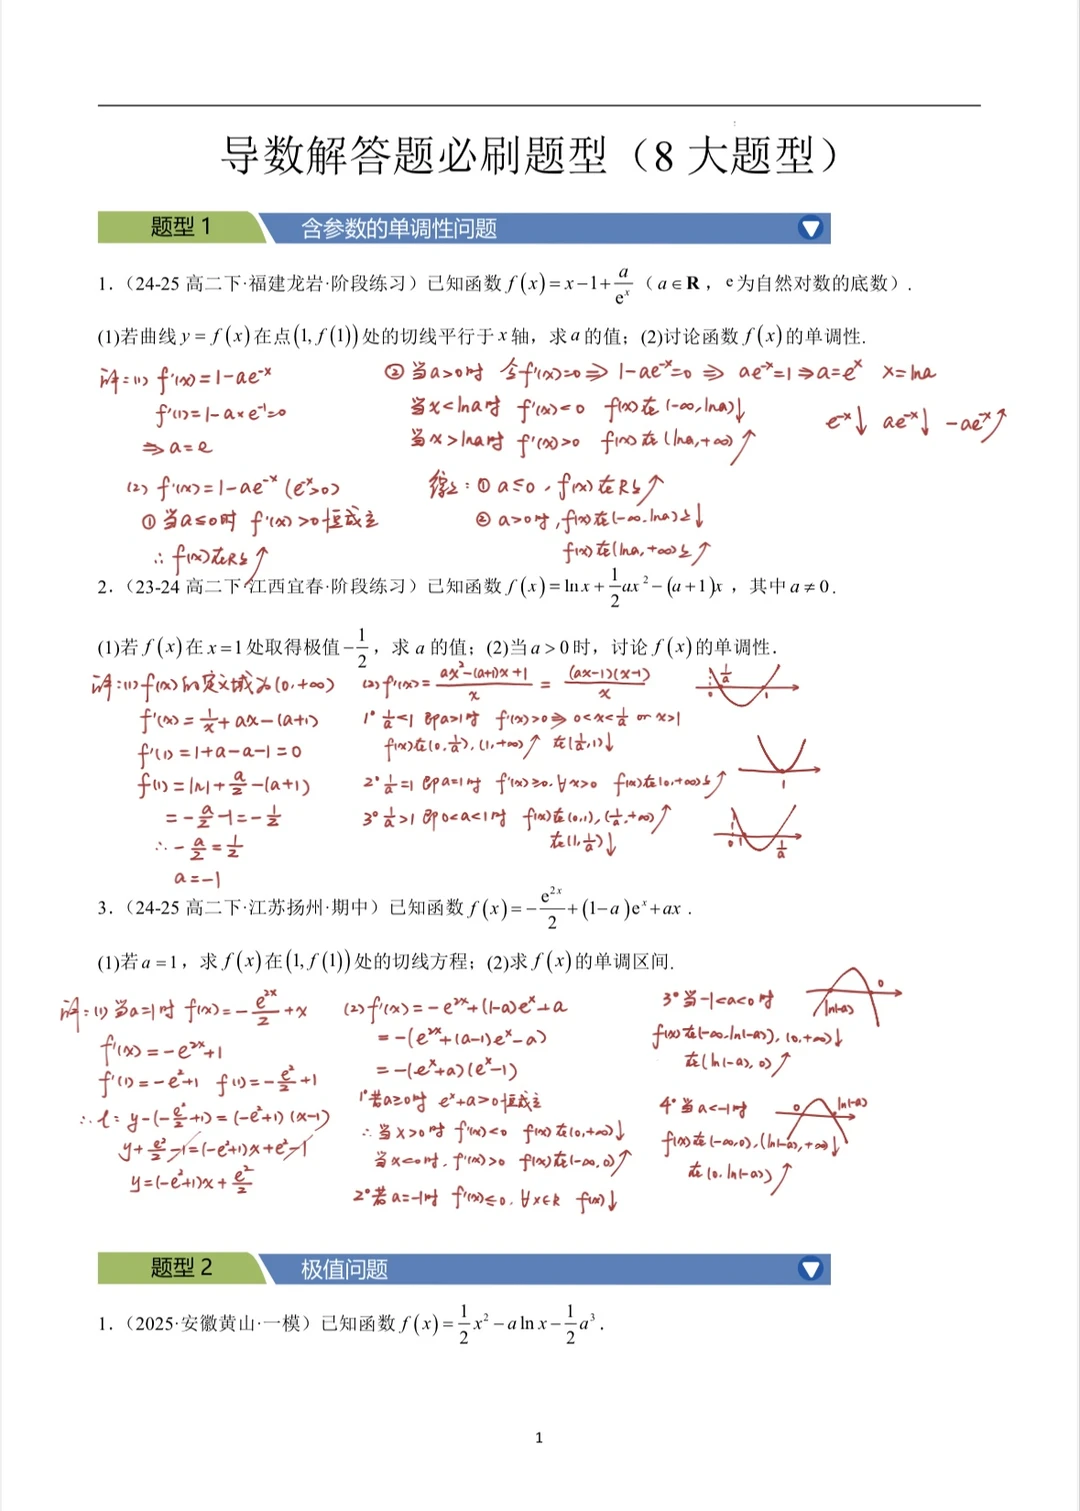 导数解答题必刷题型（8 大题型）
题型 1 含参数的单调性问题
1.（24-25 高二下·福建龙岩·阶段练习）已知函数 f(x)=x-1+a/e^x（a∈R，e为自然对数的底数）.
(1)若曲线 y=f(x)在点(1,f(1))处的切线平行于 x 轴，求 a 的值；(2)讨论函数 f(x)的单调性.
解:(1) f'(x)=1-ae^-x
f'(1)=1-a×e^-1=0
⇒a=e
(2) f'(x)=1-ae^-x (e^x>0)
①当a≤0时 f'(x)>0恒成立
∴f(x)在R上↗
②当a>0时 令f'(x)=0⇒ 1-ae^-x=0 ⇒ ae^-x=1⇒a=e^x x=lna
当x<lna时 f'(x)<0 f(x)在(-∞,lna)↓
当x>lna时 f'(x)>0 f(x)在(lna,+∞)↗
e^-x↓ ae^-x↓ -ae^-x↗
综上:①a≤0,f(x)在R上↗
②a>0时,f(x)在(-∞,lna)上↓
f(x)在(lna,+∞)上↗
2.（23-24 高二下·江西宜春·阶段练习）已知函数 f(x)=lnx+1/2ax^2-(a+1)x，其中 a≠0.
(1)若 f(x)在 x=1处取得极值-1/2，求 a 的值；(2)当 a>0时，讨论 f(x)的单调性.
解:(1)f(x)的定义域为(0,+∞)
f'(x)=1/x+ax-(a+1)
f'(1)=1+a-a-1=0
f(1)=ln1+a/2-(a+1)
=-a/2-1=-1/2
∴-a/2=1/2
a=-1
(2)f'(x)=ax^2-(a+1)x+1/x=(ax-1)(x-1)/x
1°1/a<1即a>1时 f'(x)>0⇒0<x<1/a or x>1
f(x)在(0,1/a),(1,+∞)↗在(1/a,1)↓
2°1/a=1即a=1时 f'(x)≥0,∀x>0 f(x)在(0,+∞)上↗
3°1/a>1即0<a<1时 f(x)在(0,1),(1/a,+∞)↗
在(1,1/a)↓
0 1/a 1
1
0 1 1/a
3.（24-25 高二下·江苏扬州·期中）已知函数 f(x)=-e^2x/2+(1-a)e^x+ax.
(1)若 a=1，求 f(x)在(1,f(1))处的切线方程；(2)求 f(x)的单调区间.
解:(1)当a=1时 f(x)=-e^2x/2+x
f'(x)=-e^2x+1
f'(1)=-e^2+1 f(1)=-e^2/2+1
∴l: y-(-e^2/2+1)=(-e^2+1)(x-1)
y+e^2/2-1=(-e^2+1)x+e^2-1
y=(-e^2+1)x+e^2/2
(2)f'(x)=-e^2x+(1-a)e^x+a
=-(e^2x+(a-1)e^x-a)
=-(e^x+a)(e^x-1)
1°若a≥0时 e^x+a>0恒成立
∴当x>0时 f'(x)<0 f(x)在(0,+∞)↓
当x<0时,f'(x)>0 f(x)在(-∞,0)↗
2°若a=-1时 f'(x)≤0,∀x∈R f(x)↓
3°当-1<a<0时
ln(-a) 0
f(x)在(-∞,ln(-a)),(0,+∞)↓
在(ln(-a),0)↗
4°当a<-1时
0 ln(-a)
f(x)在(-∞,0),(ln(-a),+∞)↓
在(0,ln(-a))↗
题型 2 极值问题
1.（2025·安徽黄山·一模）已知函数 f(x)=1/2x^2-alnx-1/2a^3.
1